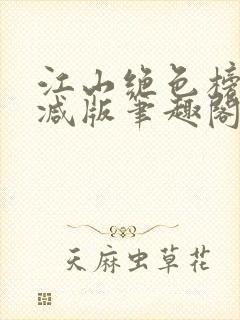 江山绝色榜
减版笔趣阁
天麻虫草花